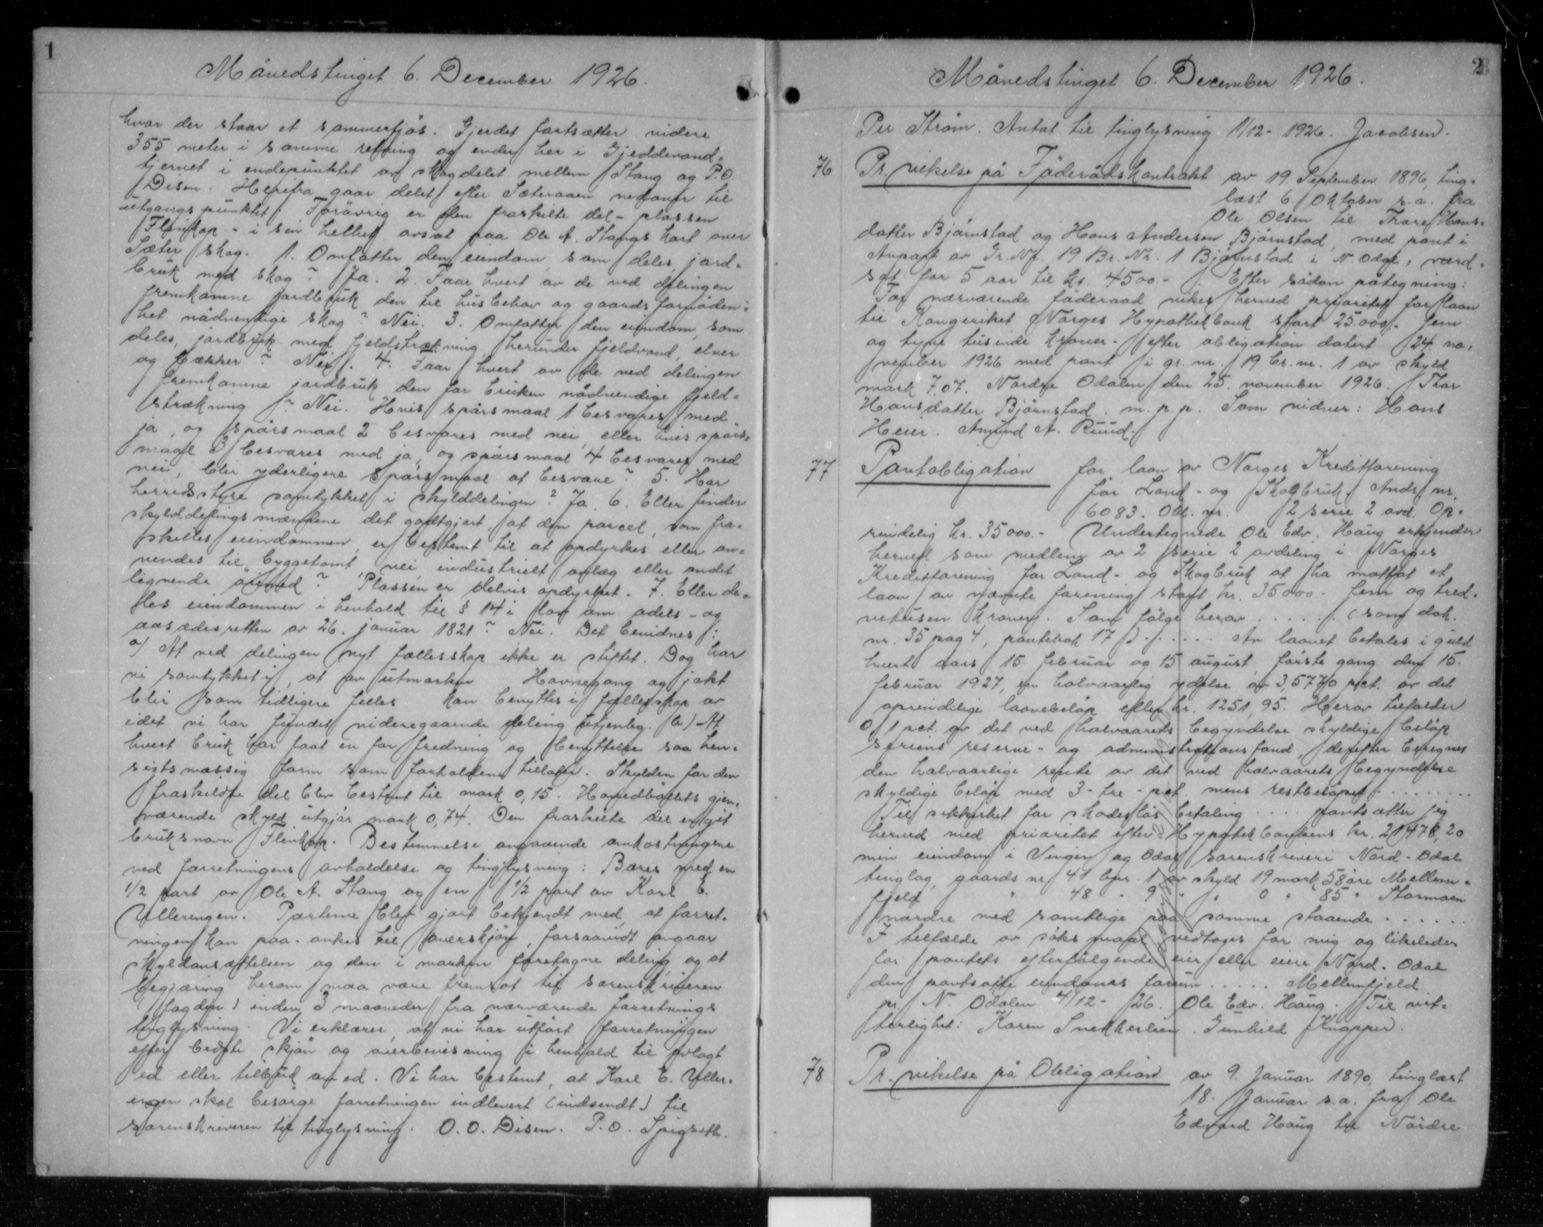 1
Månedstinget 6. December 1926.
hvor der staar et sommerfjøs. Gjerdet fortsætter videre
355 meter i samme retning og ender her i Gjeddevand-
tjernet i endepunktet av skogdelet mellem Stang og P.O.
Disen. Herfra gaar delet efter Sæteraaen nedover til
utgangspunktet. Forøvrig er den fraskilte del - plassen
Flenkop - i sin helhet avsat paa Ole A. Stangs kart over
Sæter skog. 1. Omfatter den eiendom, som deles, jord-
bruk med skog? Ja. 2. Faar hvert av de ved delingen
fremkomne jordbruk den til husbehov og gaards fornøden-
het nødvendige skog? Nei. 3. Omfatter den eiendom, som
deles, jordbruk med fjeldstrækning herunder fjeldvand, elver
og bækker? Nei. 4. Faar hvert av de ved delingen
fremkomne jordbruk den for bruken nødvendige fjeld-
strækning? Nei. Hvis spørsmaal 1 besvares med
ja, og spørsmaal 2 besvares med nei, eller hvis spørs-
maal 3 besvares med ja, og spørsmaal 4 besvares med
nei, blir yderligere spørsmaal at besvare? 5. Har
herredsstyre samtykket i skylddelingen? Ja. 6. Eller finder
skylddelingsmændene det godtgjort, at den parcel, som fra-
skilles eiendommen, er bestemt til at opdyrkes eller an-
vendes til byggetomt, vei industrielt anlæg eller andet
lignende øiemed? Plassen er delvis opdyrket. 7. Eller de-
les eiendommen i henhold til § 14 i lov om odels- og
aasædesretten av 26. januar 1821? Nei. Det bevidnes:
a) At ved delingen nyt fællesskap ikke er stiftet. Dog har
vi samtykket i, at av utmarken Havnegang og jakt
blir som tidligere felles kan benyttes i fællesskap av
idet vi har fundet videregaaende deling utjenlig. b) At
hvert bruk har faat en for fredning og benyttelse saa hen-
sigtsmæssig form som forholdene tillater. Skylden for den
fraskilte del blev bestemt til mark 0,15. Hovedbølets gjen-
værende skyld utgjør mark 0,74. Den fraskilte del er git
bruksnavn Flenkop. Bestemmelse angaaende omkostningene
ved forretningens avholdelse og tinglysning: Bæres med en
1/2 part av Ole A. Stang og en 1/2 part av Karl E.
Ullerengen. Parterne blev gjort bekjendt med, at forret-
ningen kan paa-ankes til overskjøn, forsaavidt angaar
skyldansættelsen og den i marken foretagne deling og at
begjæring herom maa være fremsat til sorenskriveren
(fogden) inden 3 maaneder fra nærværende forretnings
tinglysning. Vi erklærer at vi har utført forretningen
efter bedste skjøn og overbevisning i henhold til avlagt
ed eller tilbud om ed. Vi har bestemt, at Karl E. Uller-
engen skal besørge forretningen indlevert (indsendt) til
sorenskriveren til tinglysning. O.O. Disen. P.O. Spigseth.
2
Månedstinget 6. December 1926.
Per Strøm. Antat til tinglysning 1/12- 1926. Jacobsen.
76 Pr. vikelse på Føderådskontrakt av 19. September 1896, ting-
læst 6 Oktober s.a. fra
Ole Olsen til Thare Hans-
datter Bjørnstad og Hans Andersen Bjørnstad, med pant i
Anpart av Gr. Nr. 19 Br. Nr. 1 Bjørnstad i N. Odal, værd-
sat for 5 aar til kr. 4500.- Efter sådan påtegning:
For nærværende føderaad vikes herved prioritet for laan
til Kongeriket Norges Hypothekbank stort 25000.- fem
og tyve tusinde kroner. - efter obligation datert 24 no-
vember 1926 med pant i gr. nr. 19 br. nr. 1 av skyld
mark 7,07. Nordre Odalen den 25. november 1926. Thar
Hansdatter Bjørnstad. m. p. p. Som vidner: Hans
Heier. Amund A. Ruud.
77 Pantobligation for laan av Norges Kreditforening
for Land- og Skogbruk. Ands nr.
6083. Obl. nr. 2 serie 2 avd. Op-
rindelig kr. 35000.- Undertegnede Ole Edv. Haug erkjender
herved som medlem av 2 serie 2 avdeling i Norges
Kreditforening for Land- og Skogbruk at ha mottat et
laan av nævnte forening stort kr. 35000.- fem og tred-
vetusen kroner. Som følge herav . . . . (som dok.
nr. 35 pag 4, pantebok 17) . . . . . An laanet betales i guld
hvert aars 15. februar og 15 august første gang den 15.
februar 1927, en halvaarlig ydelse av 3,5770 pct. av det
oprindelige laanebeløp eller kr. 1251,95. Herav tilfalder
0,1 pct. av det ved halvaarets begyndelse skyldige beløp
seriens reserve- og administrationsfond derefter beregnes
den halvaarlige rente av det ved halvaarets begyndelse
skyldige beløp med 3 - tre - pct. mens restbeløpet . . . . . . . .
Til sikkerhet for skadesløs betaling . . . . pantsætter jeg
herved med prioritet efter Hypotekbankens kr. 21478,20
min eiendom i Vinger og Odal sorenskriveri Nord-Odal
tinglag, gaards nr. 41 br. nr. 1 av skyld 19 mark 58 øre Mellem-
fjeld " 48 - 9 " " 0 " 85 " Stormoen
nordre med samtlige paa samme staaende . . . . . .
I tilfælde av søksmaal vedtages for mig og likeledes
for pantets efterfølgende eier eller eiere Nord-Odal
den pantsatte eiendoms forum . . . . . Mellemfjeld
pr. N. Odalen 4/12- 26. Ole Edv. Haug. Til vit-
terlighet: Karen Snekkerlien. Gunhild Knapper.
78 Pr. vikelse på Obligation av 9. Januar 1890, tinglæst
18. Januar s.a. fra Ole
Edvard Haug til Nordre